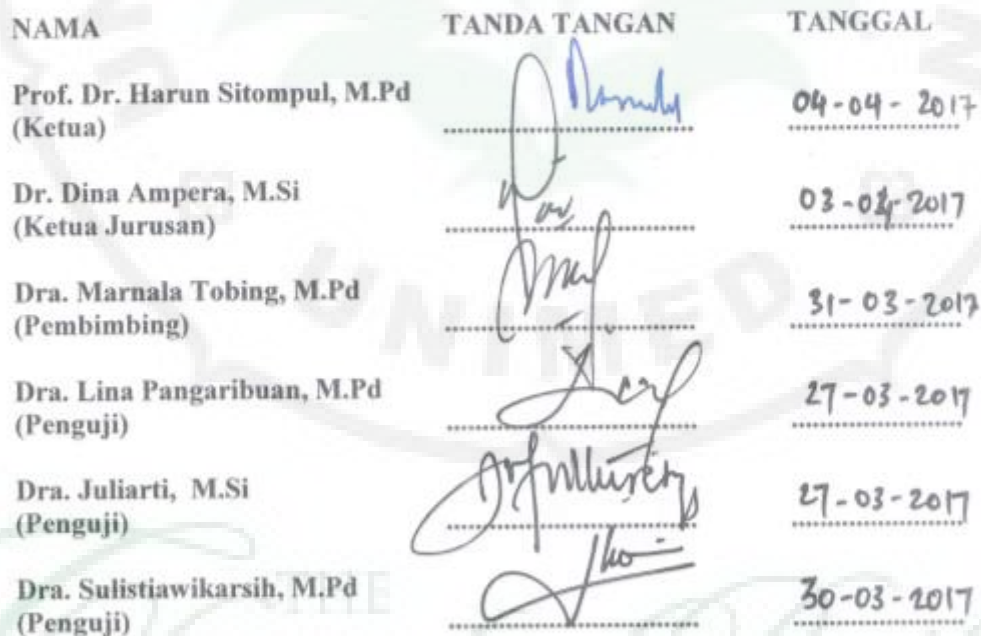 NAMA TANDA TANGAN TANGGAL
Prof. Dr. Harun Sitompul, M.Pd
(Ketua) 04-04-2017
Dr. Dina Ampera, M.Si
(Ketua Jurusan) 03-04-2017
Dra. Marnala Tobing, M.Pd
(Pembimbing) 31-03-2017
Dra. Lina Pangaribuan, M.Pd
(Penguji) 27-03-2017
Dra. Juliarti, M.Si
(Penguji) 27-03-2017
Dra. Sulistiawikarsih, M.Pd
(Penguji) 30-03-2017
UNIMED
THE